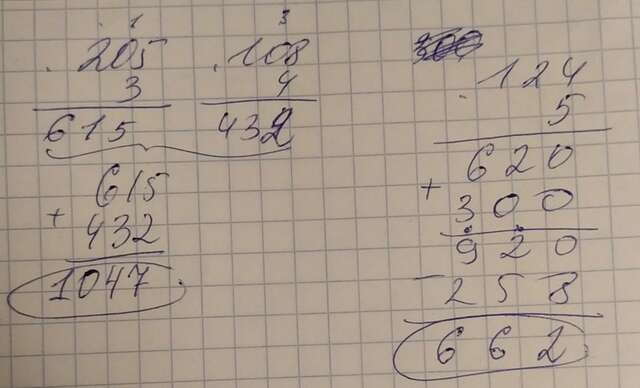 1
205
3
615
3
108
4
432
615
+
432
1047
124
5
620
+
300
920
-
258
662